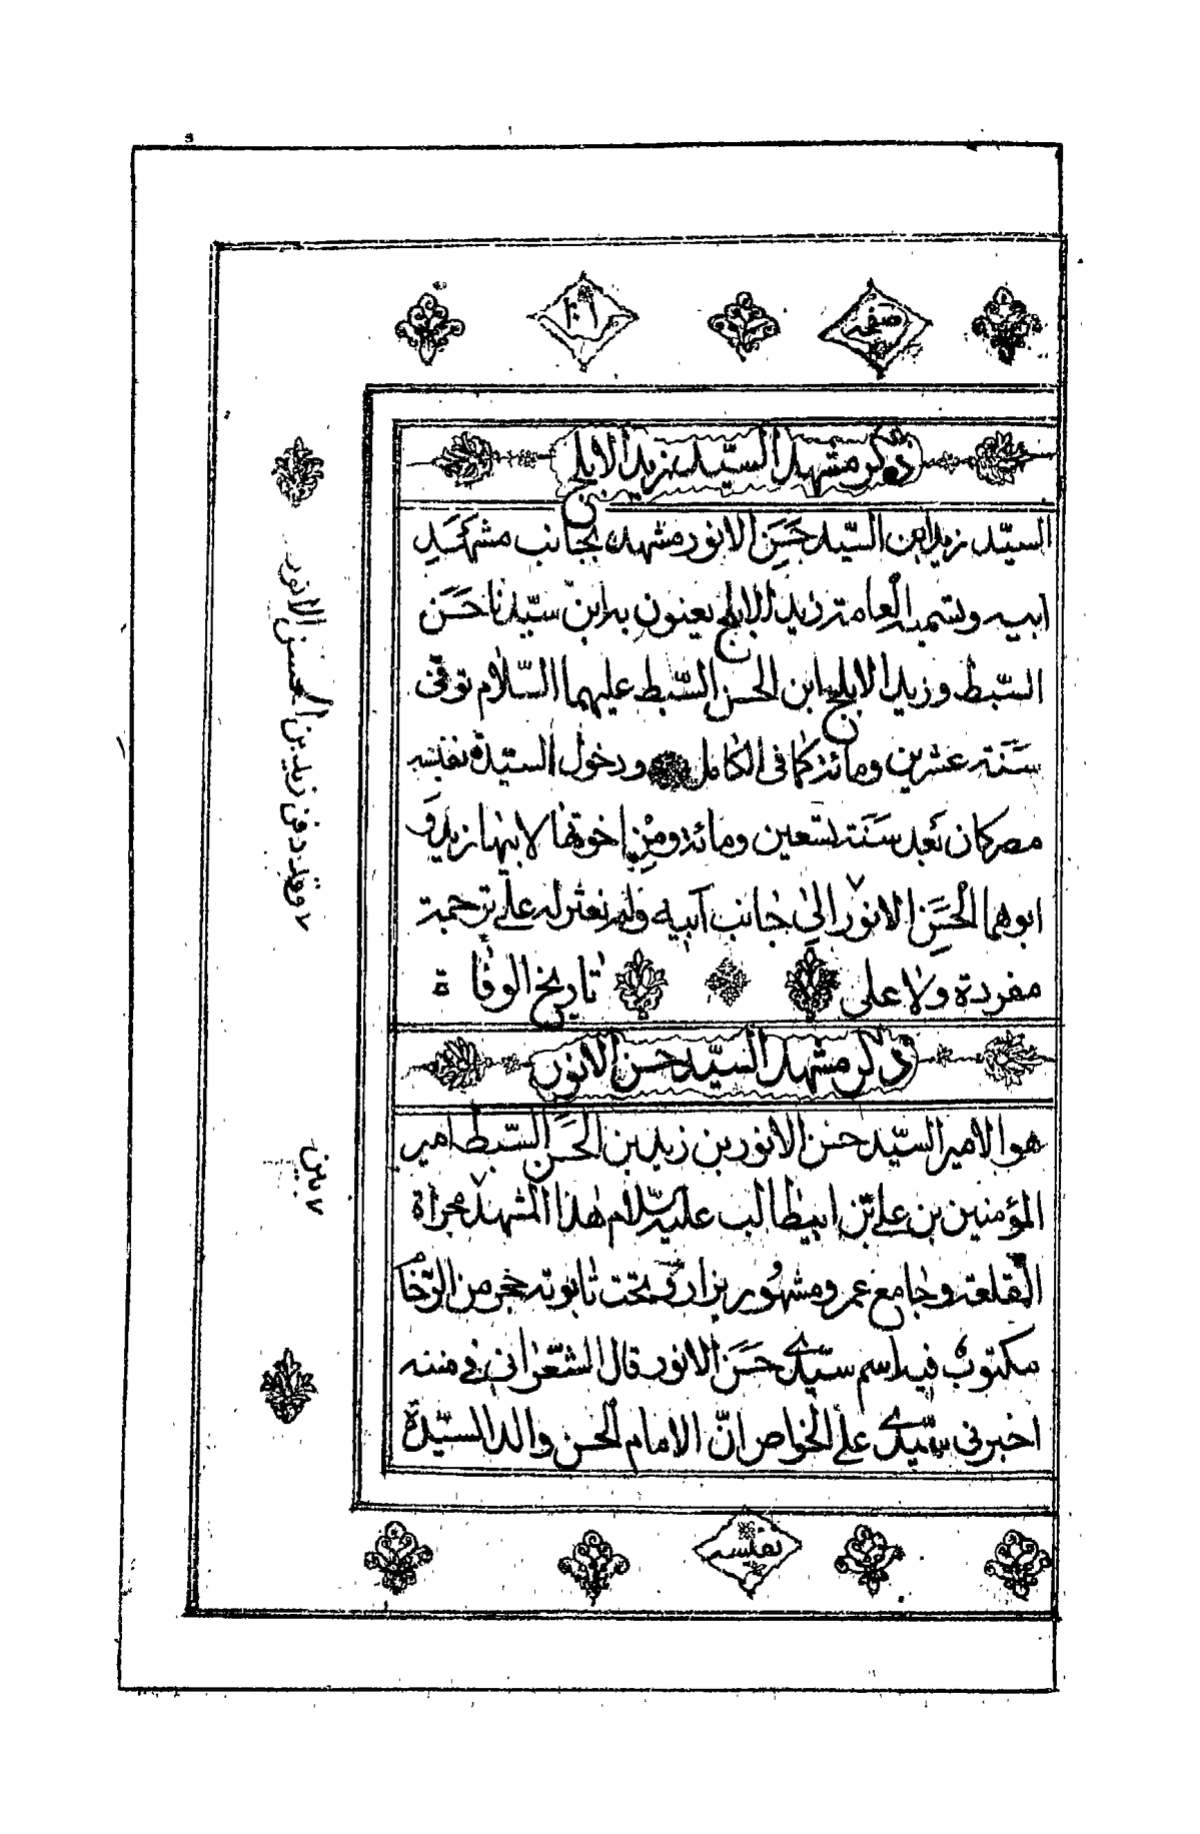 صفحه ١٠٢
ذكر مشهد السيّد زيد الابلج
السيّد زيد ابن السيّد حَسَن الانور مشهده بجانب مشهَد
ابيه وتسميه العامة زيد الابلج يعنون به ابن سيّدنا حَسَن
السّبط وزيد الابلج ابن الحسن السّبط عليهما السّلام توفّى
سَنَة عشرين ومائة كما فى الكامل ودخول السيّدة نفيسه
مصر كان بَعد سَنَة تسعين ومائة ومِن اخوتها لابيها زيد وَ
ابوهما الحَسَن الانور ٢ الى جانب ابيه ولم نعثر له على ترجمة
مفردة ولا على تاريخ الوفاة
ذكر مشهد السيّد حسن الانور
هو الامير السيّد حسن الانور بن زيد بن الحَسَن السّبط امير
المؤمنين بن على بن ابيطالب عليه السّلام هذا المشهد ٧ مجراة
القلعة وجامع عمر ومشهور يزار وتحت تابوته حجر من الرّخام
مكتوب فيه اسم سيّدي حَسَن الانور قال الشّعرانى في مننه
اخبرنى سيّدي على الخواص انّ الامام الحسن والد السيّدة
نفيسه
٢ وقد دفن زيد بن الحسن الانور
٧ بين